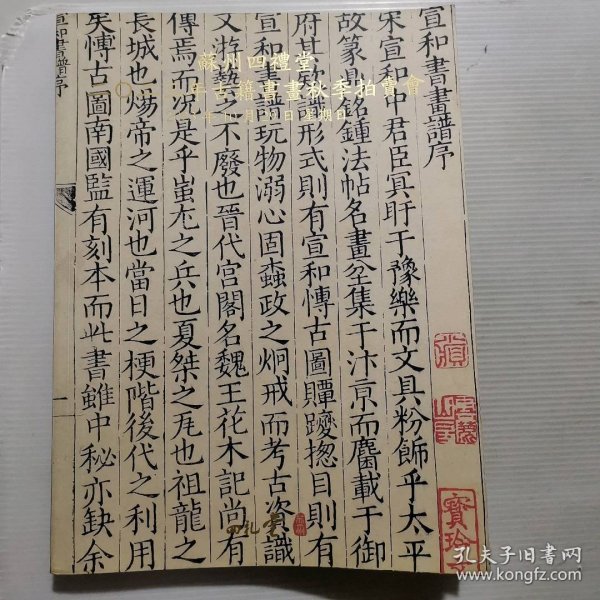 宣和書畫譜序
宋宣和中君臣冥盱于豫樂而文具粉飾乎太平
故篆鼎銘鍾法帖名畫坌集于汴京而麕載于御
府其款識形式則有宣和博古圖贉躞揔目則有
宣和書譜玩物溺心固蠹政之炯戒而考古資識
又游藝之不廢也晉代宮閣名魏王花木記尚有
傳焉而况是乎蚩尤之兵也夏桀之瓦也祖龍之
長城也煬帝之運河也當日之梗階後代之利用
矣博古圖南國監有刻本而此書雖中秘亦缺余
宣和書譜序
一
蘇州四禮堂
年古籍書畫秋季拍賣會
四禮堂
孔夫子旧书网
www.kongfz.com